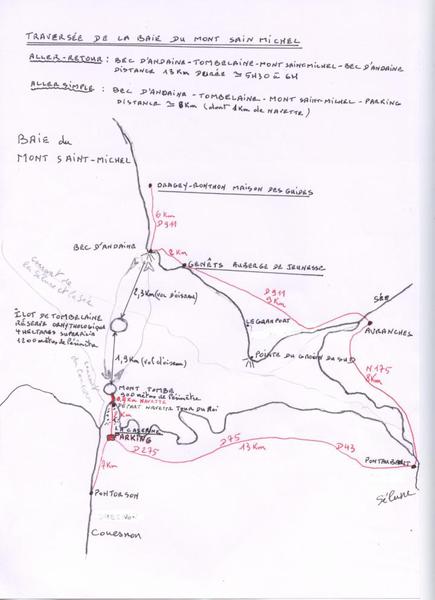 TRAVERSÉE DE LA BAIE DU MONT SAIN MICHEL
ALLER-RETOUR : BEC D'ANDAINE-TOMBELAINE-MONT SAINT-MICHEL-BEC D'ANDAINE
DISTANCE 13 Km DURÉE ≃ 5H30 à 6H
ALLER SIMPLE : BEC D'ANDAINE - TOMBELAINE - MONT SAINT-MICHEL - PARKING
DISTANCE ≃ 8Km (dont 1Km de NAVETTE)
BAIE du
MONT SAINT-MICHEL
DRAGEY-RONTHON MAISON DES GUIDES
6 Km
D911
BEC D'ANDAINE
2 Km
GENÊTS AUBERGE DE JEUNESSE
courant de
la Sélune et la Sée
D911
9 Km
2,3 Km (vol d'oiseau)
SÉE
ÎLOT DE TOMBELAINE
RÉSERVE ORNYTHOLOGIQUE
4 HECTARES SUPERFICIE
1200 mètres de Périmètre
LE GRANPORT
AVRANCHES
1,9 Km (vol d'oiseau)
POINTE DU GROUIN DU SUD
N175
8Km
MONT TOMBE
DÉPART NAVETTE TOUR du Roi
LA CASERNE
PARKING
D275
D75
13 Km
D43
PONTAUBAULT
7 Km
Sélune
PONTORSON
Couesnon